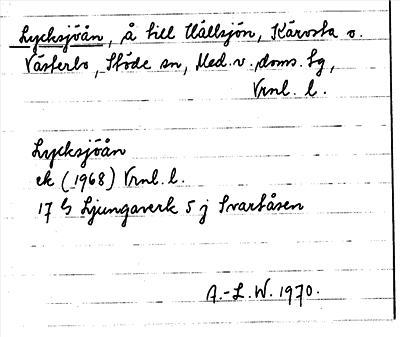 Lycksjöån, å till Hållsjön, Kärvsta o.
Västerlo, Stöde sn, Med. v. doms. Lg,
Vrnl. l.
Lycksjöån
ek (1968) Vrnl. l.
17 G Ljungaverk 5 j Svartåsen
A.-L. W. 1970.